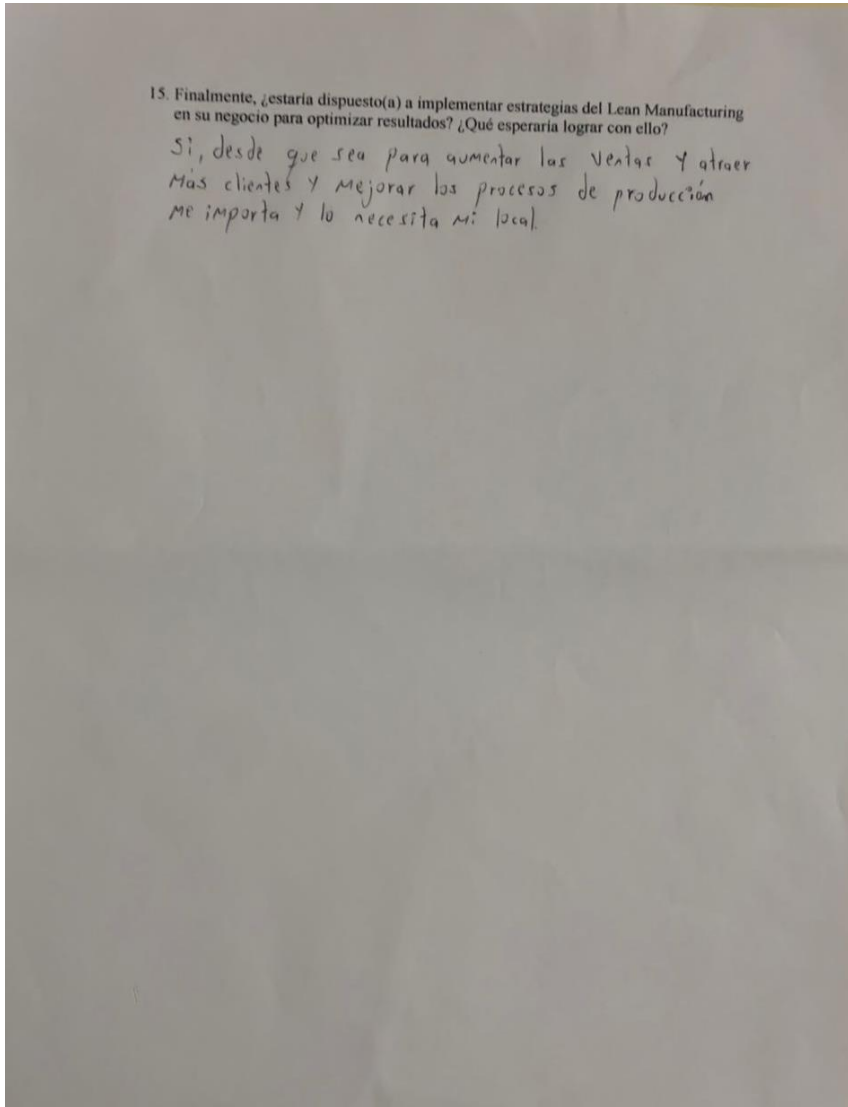 15. Finalmente, ¿estaría dispuesto(a) a implementar estrategias del Lean Manufacturing
en su negocio para optimizar resultados? ¿Qué esperaría lograr con ello?
Si, desde que sea para aumentar las ventas y atraer
Más clientes y Mejorar los procesos de producción
Me importa y lo necesita mi local.